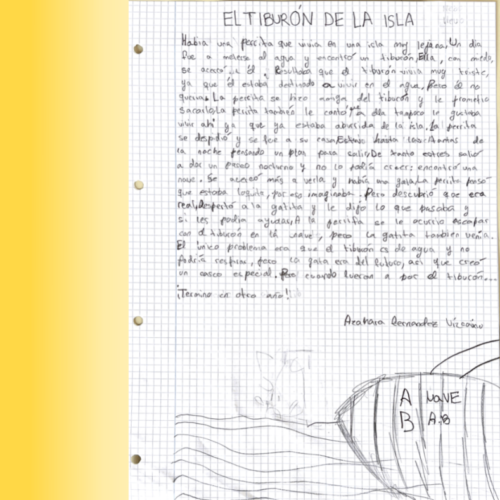 EL TIBURÓN DE LA ISLA
Había una perrita que vivía en una isla muy lejana. Un día
fue a meterse al agua y encontró un tiburón. Ella, con miedo,
se acercó a él. Resultaba que el tiburón vivía muy triste,
ya que él estaba destinado a vivir en el agua, pero él no
quería. La perrita se hizo amiga del tiburón y le prometió
sacarlo. La perrita también le contó que a ella tampoco le gustaba
vivir ahí ya que ya estaba aburrida de la isla. La perrita
se despidió y se fue a su casa. Estuvo hasta las de
la noche pensando un plan para salir. De tanto estrés salió
a dar un paseo nocturno y no lo podía creer: encontró una
nave. Se acercó más a verla y había una gata. La perrita pensó
que estaba loquita, por eso imaginaba. Pero descubrió que era
real. Despertó a la gatita y le dijo lo que pasaba y
si les podía ayudar. A la perrita se le ocurrió escapar
con el tiburón en la nave, pero la gatita también venía.
El único problema era que el tiburón es de agua y no
podría respirar, pero la gata era del futuro, así que creó
un casco especial. Pero cuando fueron a por el tiburón...
¡Termino en otro año!
A NAVE
B A.B